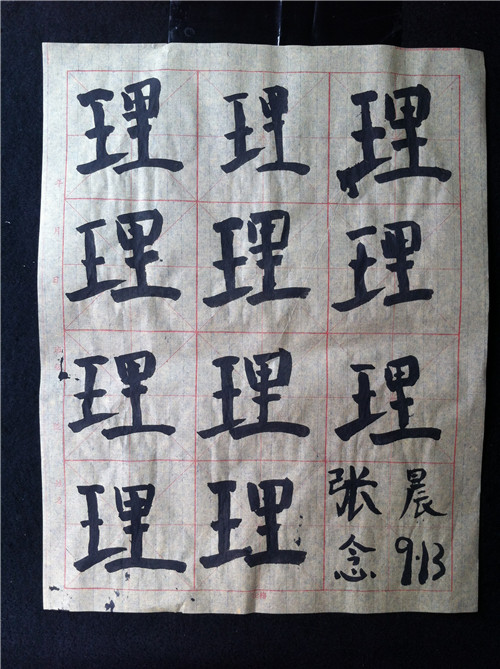 理 理 理
理 理 理
理 理 理
理 理
张晨念
9.13